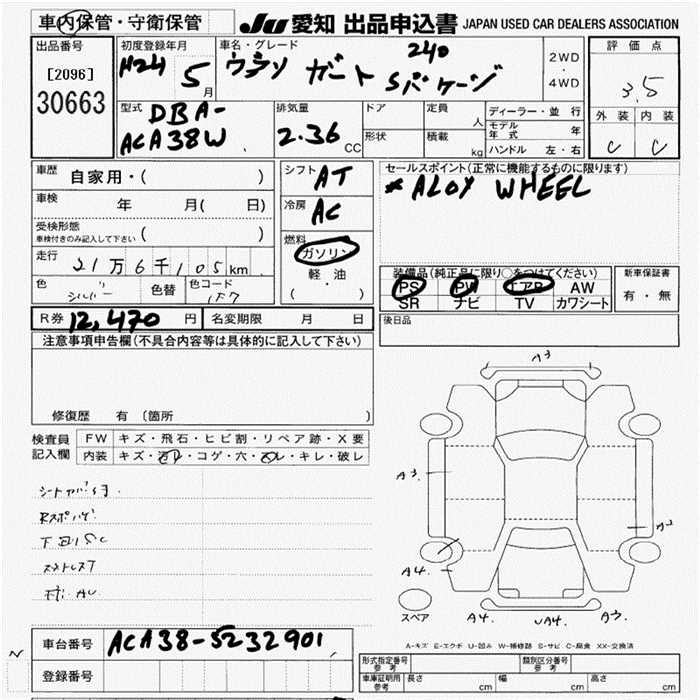 車内保管・守衛保管
JU 愛知 出品申込書 JAPAN USED CAR DEALERS ASSOCIATION
出品番号
[2096]
30663
初度登録年月
H24 5月
車名・グレード
240
Sパケージ
2WD
・
4WD
評価点
3.5
外装 内装
C C
型式
DBA-
ACA38W
排気量
2.36 CC
ドア
形状
定員 人
積載 kg
ディーラー・並行
モデル年式 年
ハンドル 左・右
車歴 自家用・( )
車検 年 月( 日)
受検形態
車検付きのみ記入して下さい ( )
走行 21万6千105km
色 シルバー 色替 色コード 1F7
シフト AT
冷房 AC
燃料
ガソリン
軽油
( ・ )
セールスポイント(正常に機能するものに限ります)
* ALOY WHEEL
装備品(純正品に限り○をつけてください)
PS PW エアB AW
SR ナビ TV カワシート
新車保証書
有・無
R券 12,470 円 名変期限 月 日
後日品
注意事項申告欄(不具合内容等は具体的に記入して下さい)
修復歴 有 〔箇所 〕
検査員記入欄
FW キズ・飛石・ヒビ割・リペア跡・X要
内装 キズ・汚レ・コゲ・穴・スレ・キレ・破レ
A3
A3
A2
A4.
A4. UA4. A3.
スペア
A-キズ E-エクボ U-凹み W-補修跡 S-サビ C-腐食 XX-交換済
車台番号 ACA38-5232901
登録番号
N
形式指定番号 参考
類別区分番号 参考
車庫証明用参考 長さ cm 幅 cm 高さ cm